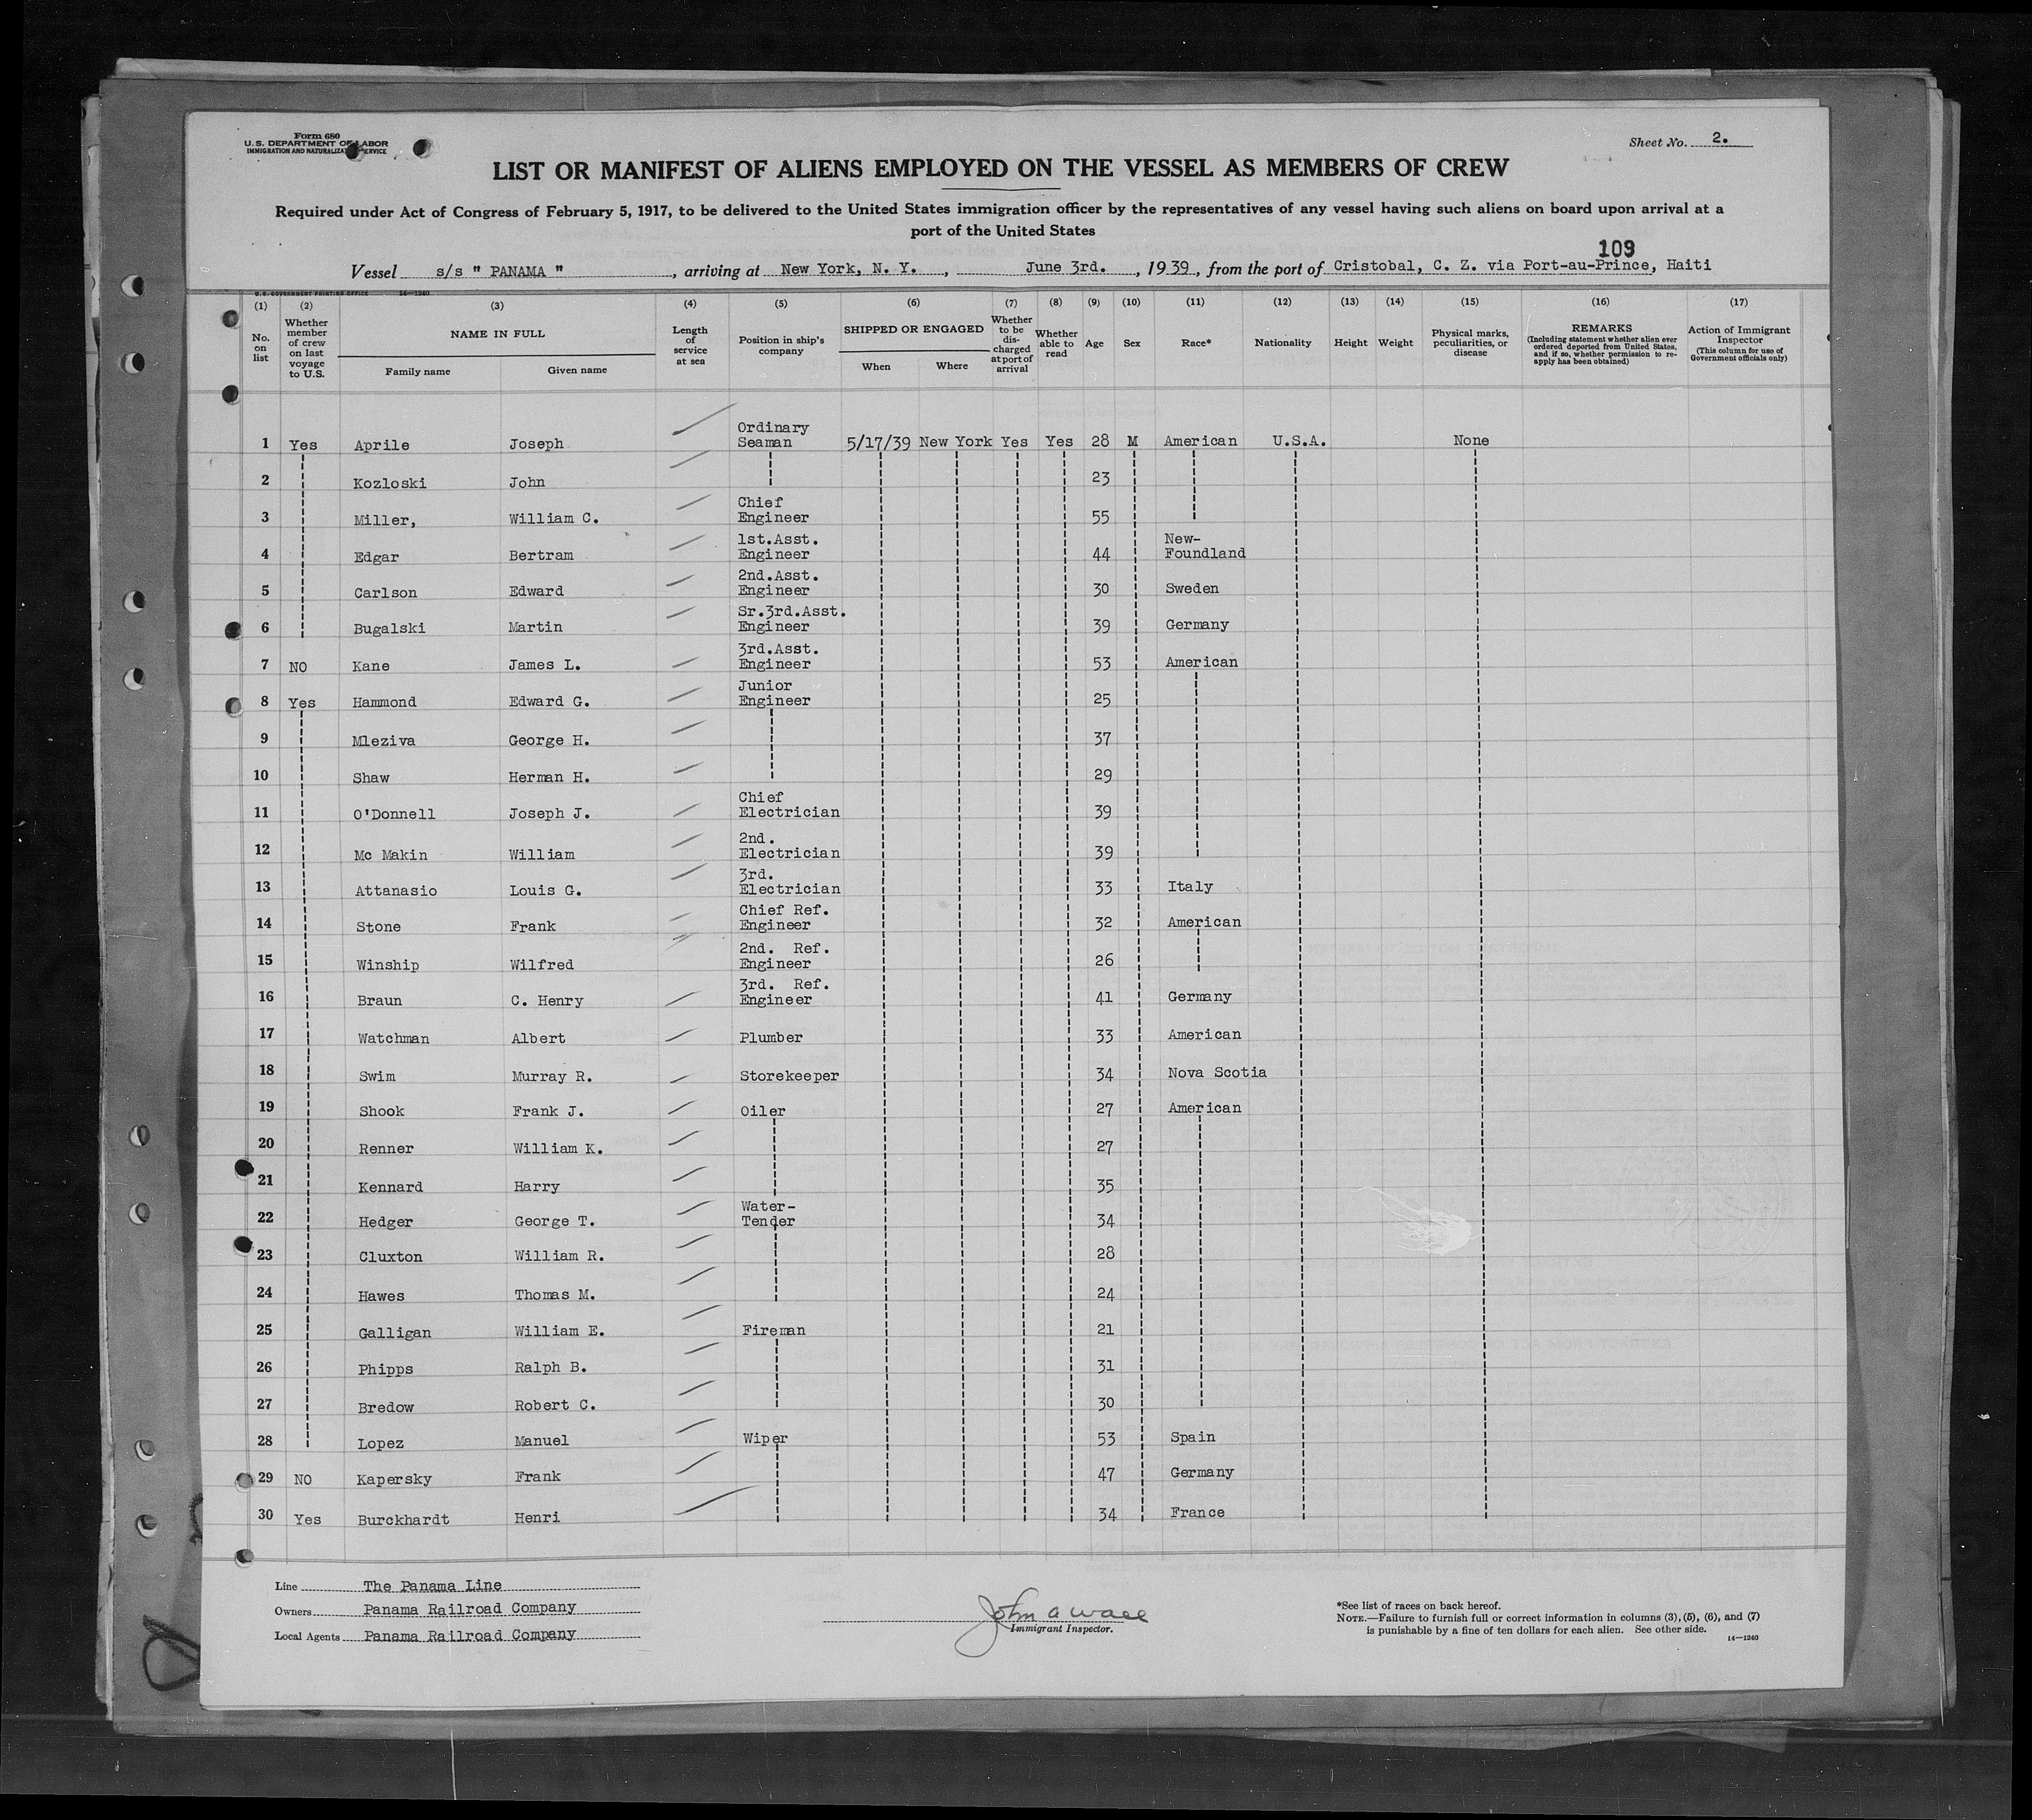 Form 680
U. S. DEPARTMENT OF LABOR
IMMIGRATION AND NATURALIZATION SERVICE
Sheet No. 2.
LIST OR MANIFEST OF ALIENS EMPLOYED ON THE VESSEL AS MEMBERS OF CREW
Required under Act of Congress of February 5, 1917, to be delivered to the United States immigration officer by the representatives of any vessel having such aliens on board upon arrival at a
port of the United States
109
Vessel s/s " PANAMA ", arriving at New York, N. Y., June 3rd., 1939, from the port of Cristobal, C. Z. via Port-au-Prince, Haiti
U. S. GOVERNMENT PRINTING OFFICE 14—1240
(1) (2) (3) (4) (5) (6) (7) (8) (9) (10) (11) (12) (13) (14) (15) (16) (17)
No. on list
Whether member of crew on last voyage to U.S.
NAME IN FULL
Family name Given name
Length of service at sea
Position in ship's company
SHIPPED OR ENGAGED
When Where
Whether to be discharged at port of arrival
Whether able to read
Age
Sex
Race*
Nationality
Height
Weight
Physical marks, peculiarities, or disease
REMARKS
(Including statement whether alien ever ordered deported from United States, and if so, whether permission to reapply has been obtained)
Action of Immigrant Inspector
(This column for use of Government officials only)
1 Yes Aprile Joseph Ordinary Seaman 5/17/39 New York Yes Yes 28 M American U.S.A. None
2 Kozloski John 23
3 Miller, William C. Chief Engineer 55
4 Edgar Bertram 1st.Asst. Engineer 44 New-Foundland
5 Carlson Edward 2nd.Asst. Engineer 30 Sweden
6 Bugalski Martin Sr.3rd.Asst. Engineer 39 Germany
7 NO Kane James L. 3rd.Asst. Engineer 53 American
8 Yes Hammond Edward G. Junior Engineer 25
9 Mleziva George H. 37
10 Shaw Herman H. 29
11 O'Donnell Joseph J. Chief Electrician 39
12 Mc Makin William 2nd. Electrician 39
13 Attanasio Louis G. 3rd. Electrician 33 Italy
14 Stone Frank Chief Ref. Engineer 32 American
15 Winship Wilfred 2nd. Ref. Engineer 26
16 Braun C. Henry 3rd. Ref. Engineer 41 Germany
17 Watchman Albert Plumber 33 American
18 Swim Murray R. Storekeeper 34 Nova Scotia
19 Shook Frank J. Oiler 27 American
20 Renner William K. 27
21 Kennard Harry 35
22 Hedger George T. Water-Tender 34
23 Cluxton William R. 28
24 Hawes Thomas M. 24
25 Galligan William E. Fireman 21
26 Phipps Ralph B. 31
27 Bredow Robert C. 30
28 Lopez Manuel Wiper 53 Spain
29 NO Kapersky Frank 47 Germany
30 Yes Burckhardt Henri 34 France
Line The Panama Line
Owners Panama Railroad Company
Local Agents Panama Railroad Company
John A Wall
Immigrant Inspector.
*See list of races on back hereof.
NOTE.—Failure to furnish full or correct information in columns (3), (5), (6), and (7)
is punishable by a fine of ten dollars for each alien. See other side.
14—1240